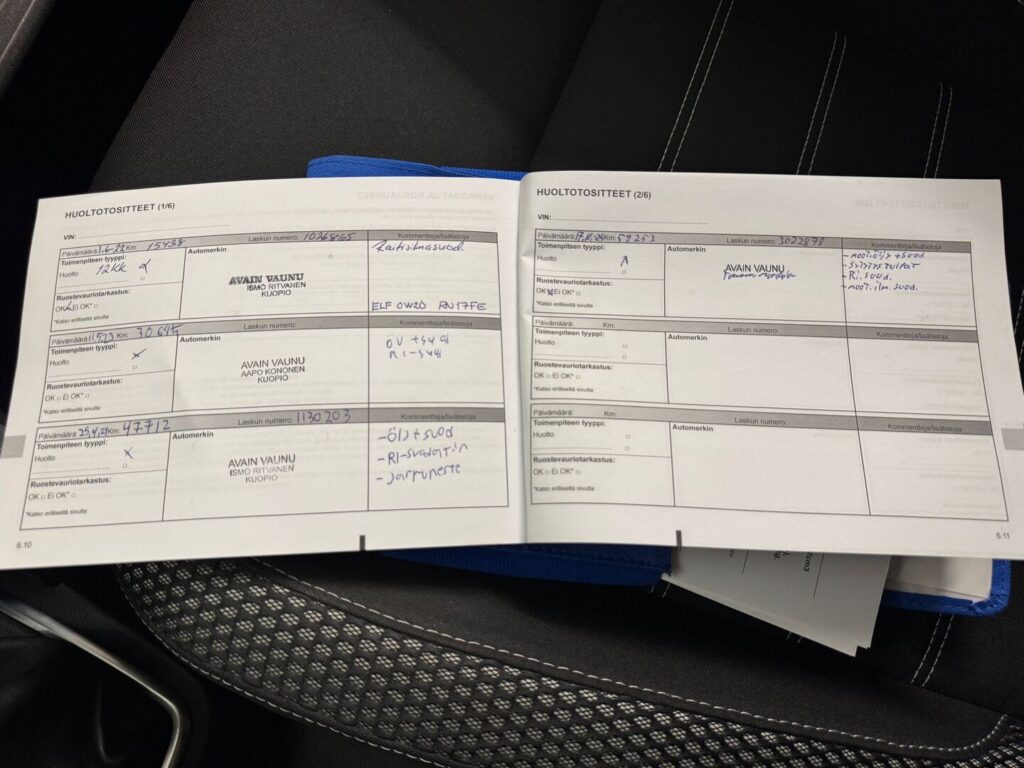 HUOLTOTOSITTEET (1/6)
VIN:
Päivämäärä Km: 15438
Laskun numero: 1026865
Kommentteja/lisätietoja
Toimenpiteen tyyppi:
Huolto
12kk
Automerkin
AVAIN VAUNU
ISMO RITVANEN
KUOPIO
Raitisilmasuod.
ELF 0W20 RN17FE
Ruostevauriotarkastus:
OK Ei OK*
*Katso erilliseltä sivulta
Päivämäärä Km:
Laskun numero:
Kommentteja/lisätietoja
Toimenpiteen tyyppi:
Huolto
Automerkin
AVAIN VAUNU
AAPO KONONEN
KUOPIO
öv +suod
Ri-suod
Ruostevauriotarkastus:
OK Ei OK*
*Katso erilliseltä sivulta
Päivämäärä Km: 47712
Laskun numero: 1130203
Kommentteja/lisätietoja
Toimenpiteen tyyppi:
Huolto
Automerkin
AVAIN VAUNU
ISMO RITVANEN
KUOPIO
-Öljy+suod
-Ri-suodatin
-Jarruneste
Ruostevauriotarkastus:
OK Ei OK*
*Katso erilliseltä sivulta
6.10
HUOLTOTOSITTEET (2/6)
VIN:
Päivämäärä Km: 59253
Laskun numero: 3022878
Kommentteja/lisätietoja
Toimenpiteen tyyppi:
Huolto
A
Automerkin
AVAIN VAUNU
-moot.öljy+suod
-Sytytystulpat
-Ri.suod.
-moot.ilm.suod.
Ruostevauriotarkastus:
OK Ei OK*
*Katso erilliseltä sivulta
Päivämäärä: Km:
Laskun numero:
Kommentteja/lisätietoja
Toimenpiteen tyyppi:
Huolto
Automerkin
Ruostevauriotarkastus:
OK Ei OK*
*Katso erilliseltä sivulta
Päivämäärä: Km:
Laskun numero:
Kommentteja/lisätietoja
Toimenpiteen tyyppi:
Huolto
Automerkin
Ruostevauriotarkastus:
OK Ei OK*
*Katso erilliseltä sivulta
6.11